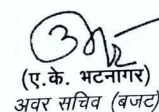 (ए.के. भटनागर)
अवर सचिव (बजट)